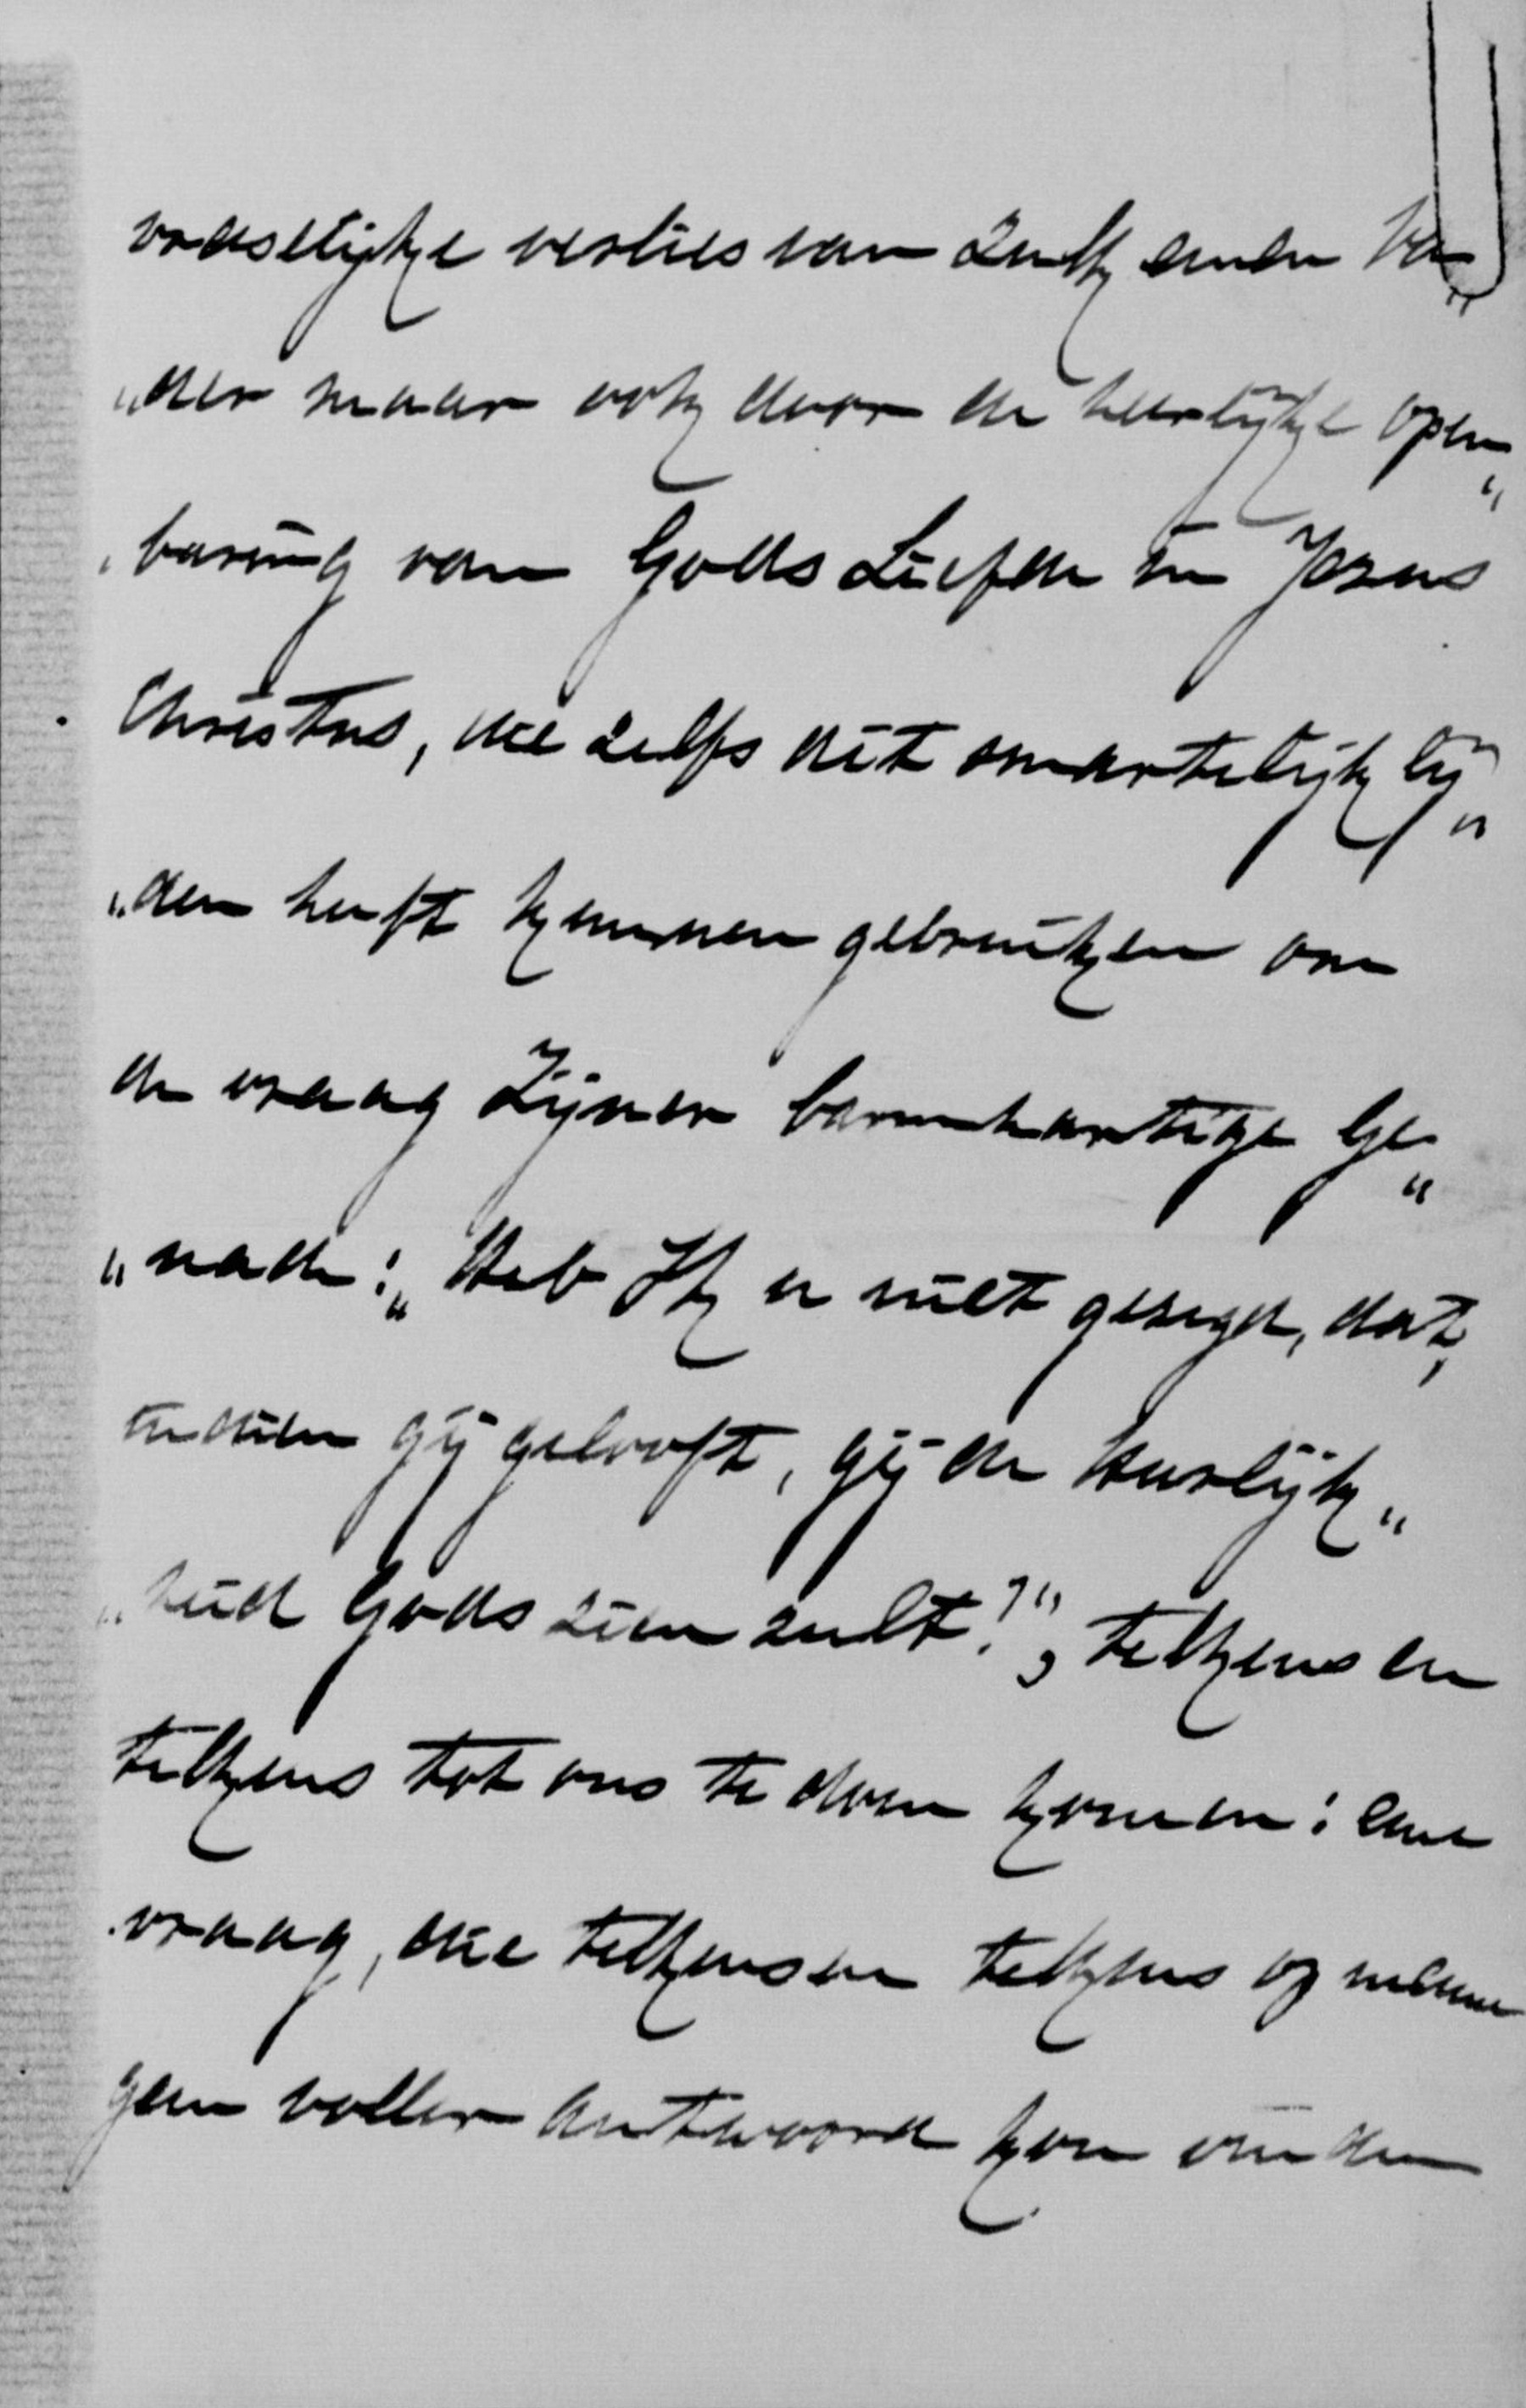 vreeselijke verlies van zulk eenen Va„
„der maar ook door de heerlijke open„
„baring van Gods Liefde in Jezus
Christus, die zelfs dit smartelijk lij„
„den heeft kunnen gebruiken om
de vraag Zijner barmhartige Ge„
„nade: „Heb Ik u niet gezegd, dat,
indien gij gelooft, gij de Heerlijk„
„heid Gods zien zult?", telkens en
telkens tot ons te doen komen: eene
vraag, die telkens en telkens op
geen voller antwoord kon vinden